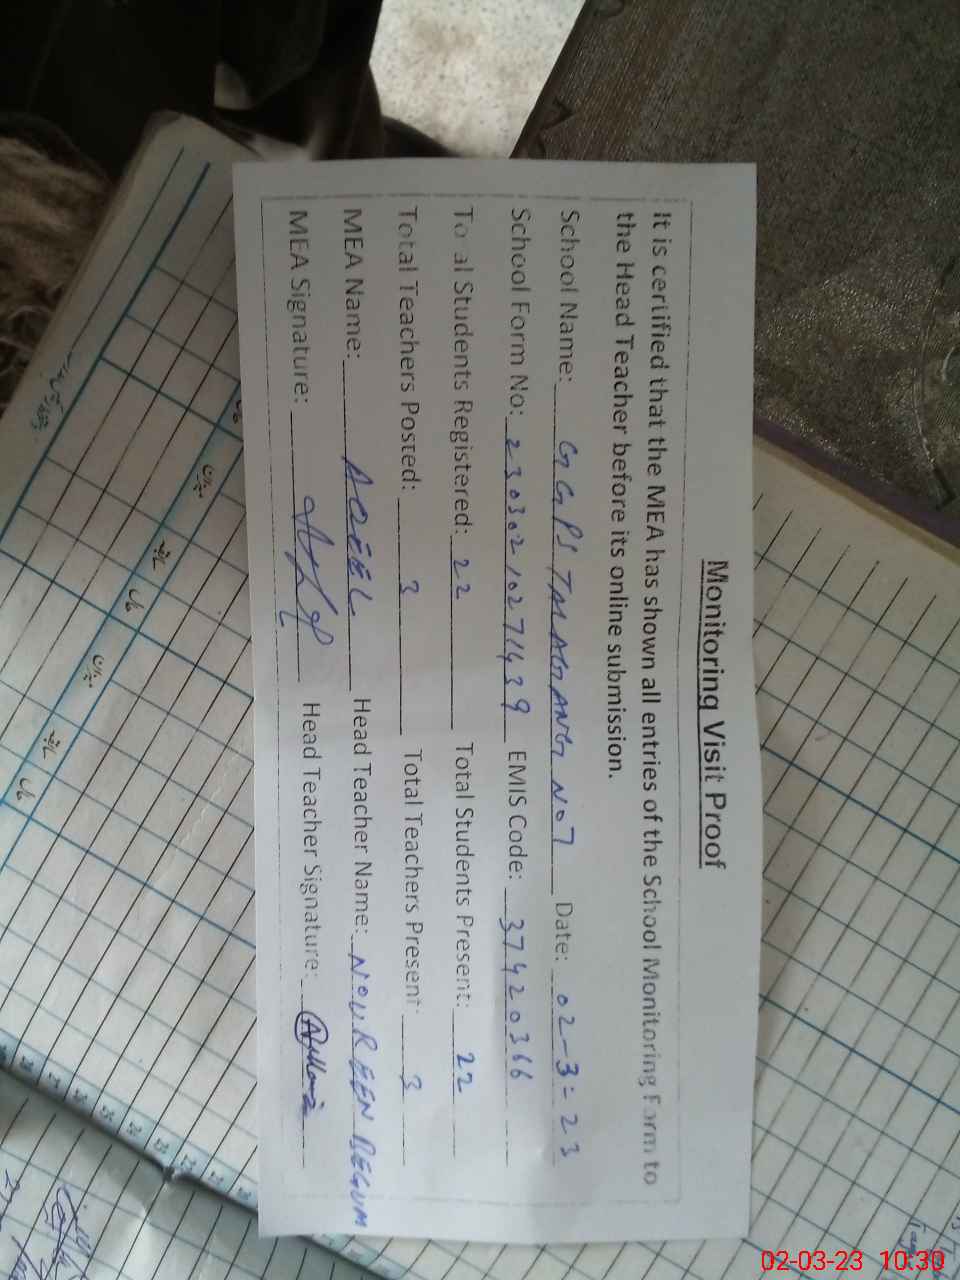 Monitoring Visit Proof
It is certified that the MEA has shown all entries of the School Monitoring Form to
the Head Teacher before its online submission.
School Name: GGPS TALAGANG NO7 Date: 02-3-23
School Form No: 23030210271439 EMIS Code: 37420366
Total Students Registered: 22 Total Students Present: 22
Total Teachers Posted: 3 Total Teachers Present: 3
MEA Name: AQEEL Head Teacher Name: NOUREEN BEGUM
MEA Signature: Head Teacher Signature:
02-03-23 10:30